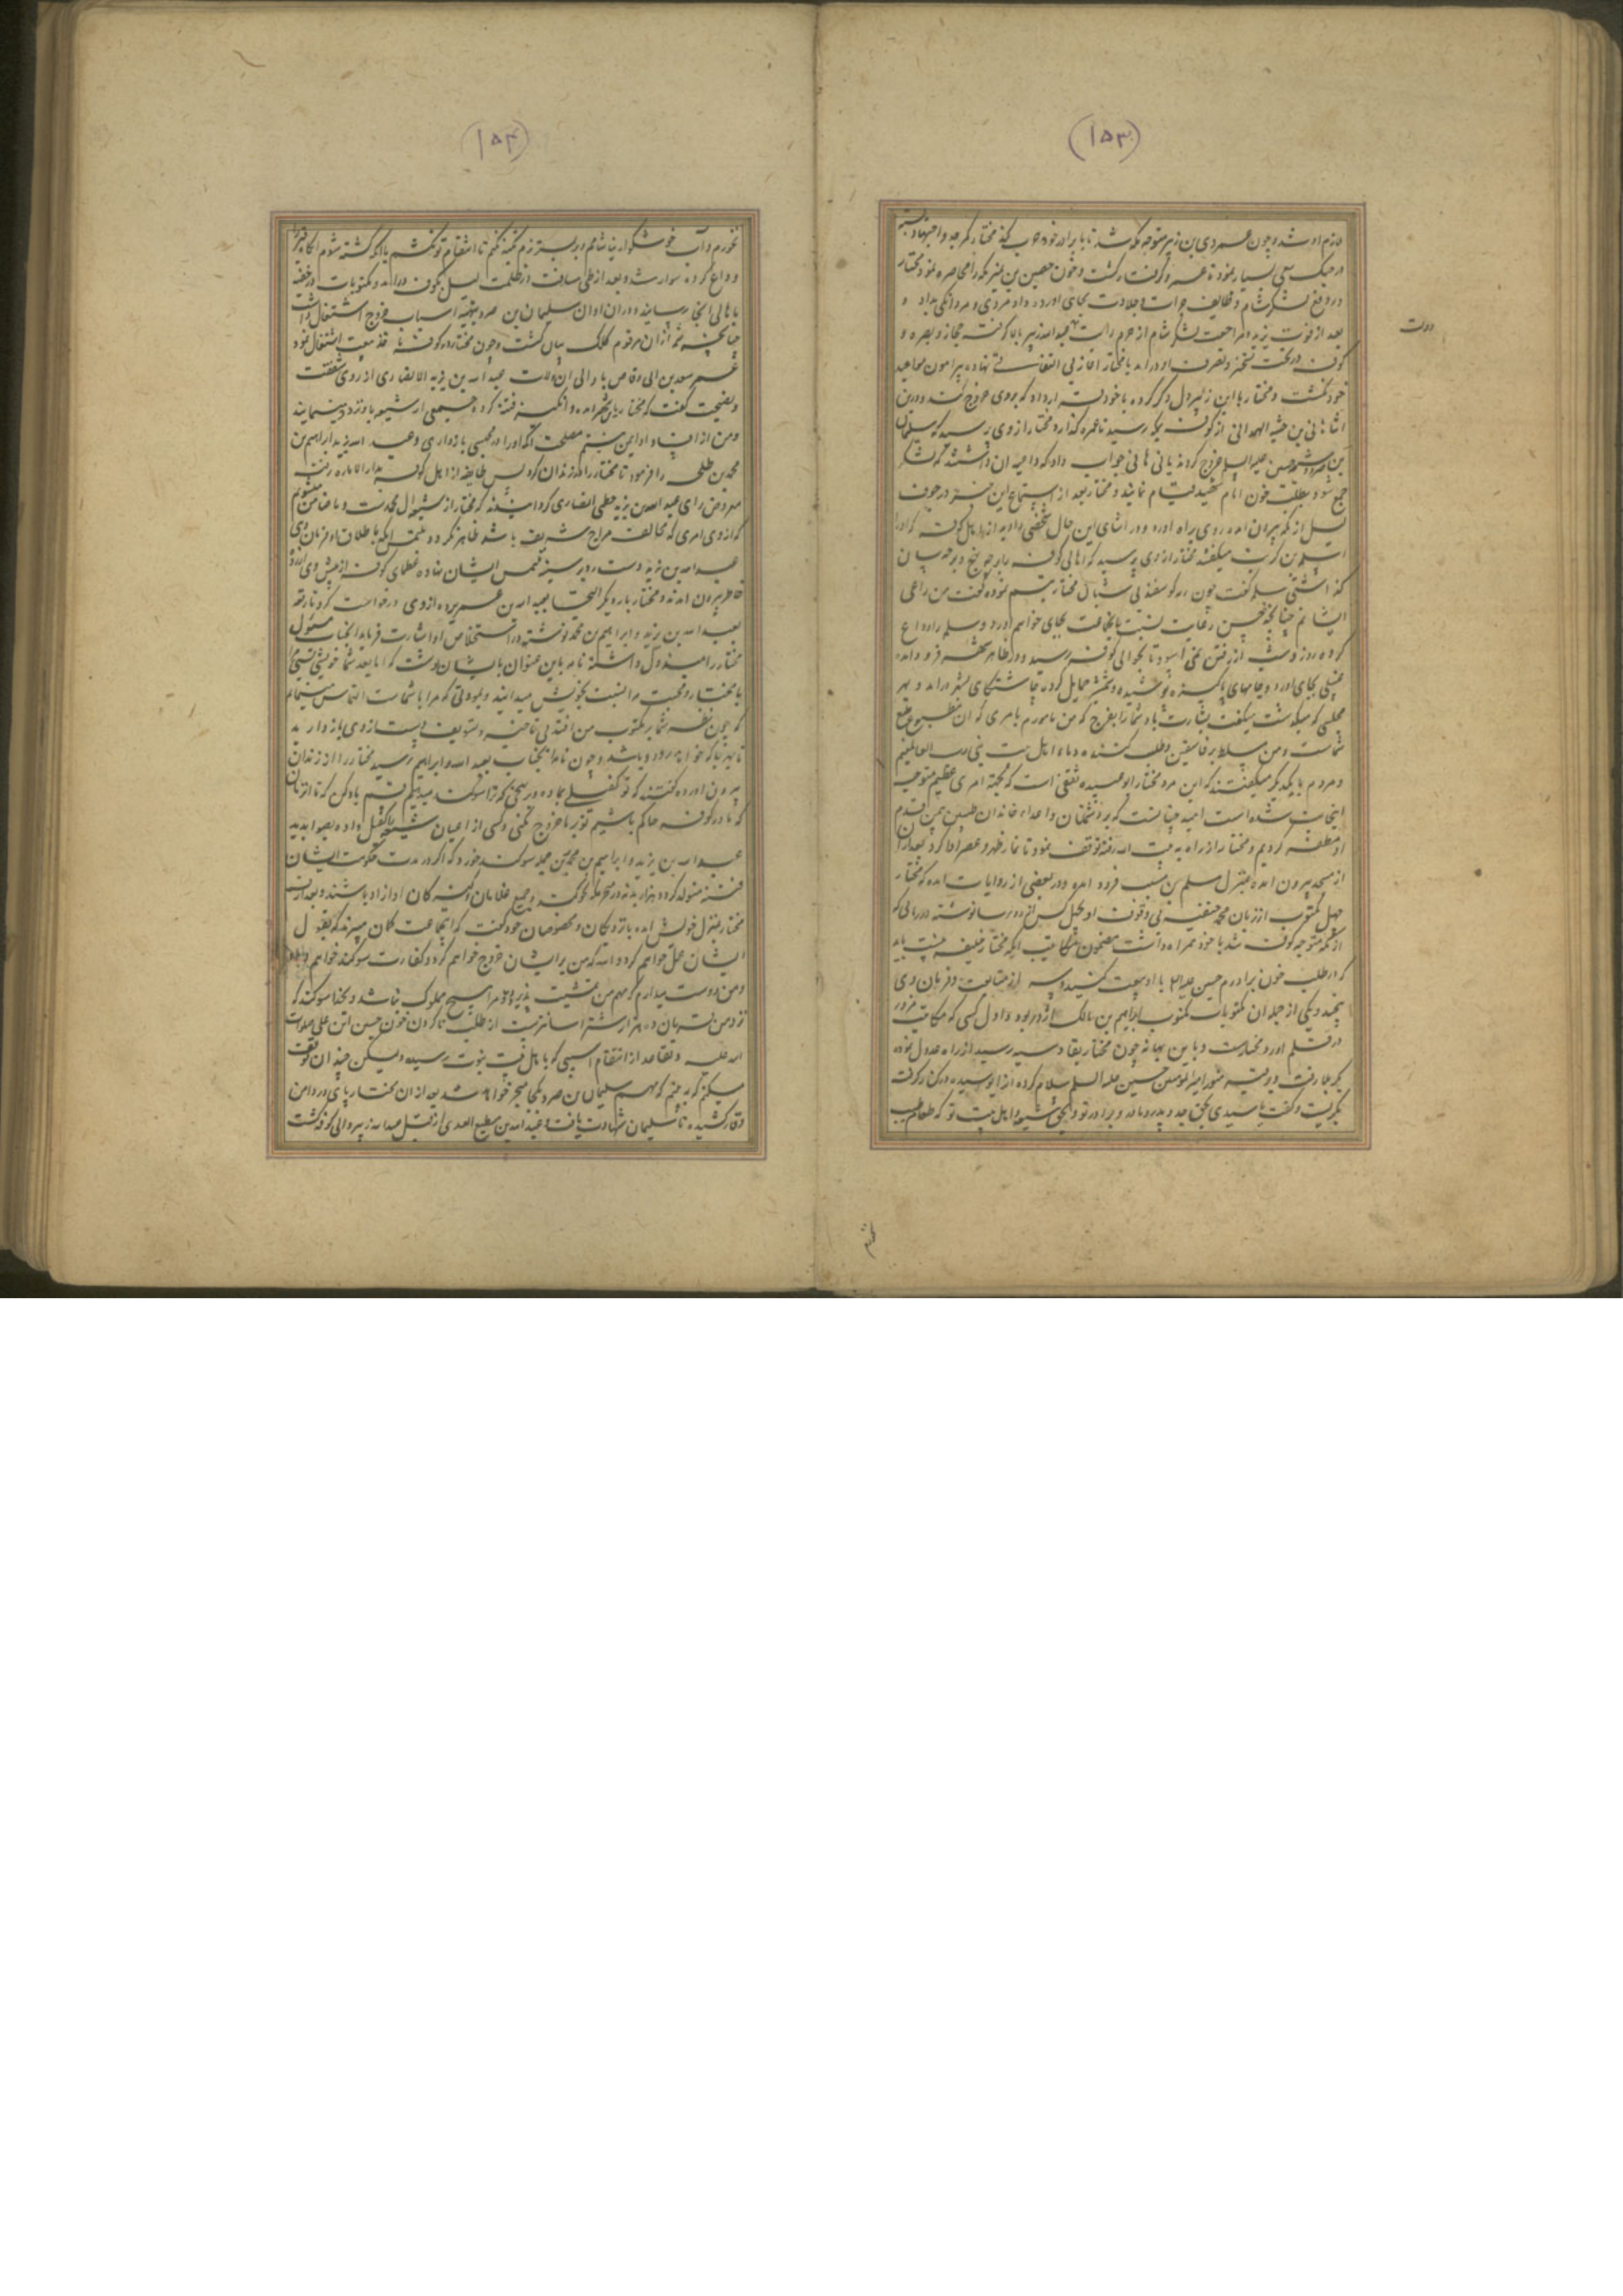 (۱۵۳)
لازم او شد و چون عمرو بن زبیر متوجه مکه شد تا با برادر خود حرب کند مختار کمر جد و اجتهاد بسته
در جنک سعی بسیار نمود تا عمرو گرفتار گشت و چون حصین بن نمیر مکه را محاصره نمود مختار
در دفع لشکر شام وظایف جرات و جلادت بجای آورده داد مردی و مردانکی بداد و
بعد از فوت یزید و مراجعت لشکر شام از حرم عبدالله زبیر حجاز و بصره و
کوفه در تحت تسخیر و تصرف او درآمد با مختار آغاز بی التفاتی نهاده پیرامون مواعید
خود نکشت و مختار با ابن زبیر دل دگر کرده با خود قرار داد که بروی خروج کند و درین
اثنا هانی بن حیه الهمدانی از کوفه بمکه رسید تا عمره گذارد مختار از وی پرسید که سلیمان
بن صرد حسین علیه السلام خروج کرد یا نی هانی جواب داد که داعیه آن داشتند که لشکر
جمع شود و بطلب خون امام شهید قیام نمایند و مختار بعد از استماع این خبر در جوف
لیل از مکه بیرون آمده روی براه آورد و در اثنای این حال شخصی را دید از اهل کوفه که او را
سلمه بن کرب میکفتند مختار از وی پرسید که اهالی کوفه را بر چه نهج و برچه سان
گذاشتی سلمه کفت چون رمه کوسفند بی شبان مختار تبسم نموده کفت من راعی
ایشانم چنانچه حسن رعایت نسبت بآنجماعت بجای خواهم آورد و سلمه را وداع
کرده روز و شب از رفتن نمی آسود تا بحوالی کوفه رسید و در ظاهر شهر فرود آمده
غسلی بجای آورد و جامهای پاکیزه پوشیده و شمشیر حمایل کرده چاشتکاهی بشهر درآمد و بهر
مجلسی که میکذشت میکفت بشارت باد شما را بفرج که من مامورم بامری که آن مطبوع طبع
شماست و من مسلط بر فاسقین و طلب کننده دماء اهل بیت نبی رب العالمینم
و مردم با یکدیگر میکفتند که این مرد مختار ابو عبیده ثقفی است که بجهة امری عظیم متوجه
اینجانب شده است امید چنانست که بر دشمنان و اعداء خاندان طیبین بیمن قدم
او مظفر کردیم و مختار از راه به بیت الله رفته توقف نمود تا نماز ظهر و عصر ادا کرد بعد از آن
از مسجد بیرون آمده بمنزل سلم بن مسیب فرود آمد و در بعضی از روایات آمده که مختار
چهل مکتوب از زبان محمد حنفیه بی وقوف او بچهل کس از رؤسا نوشته در زمانی که
از مکه متوجه کوفه شد با خود همراه داشت مضمون مکاتیب آنکه مختار خلیفه منست باید
که در طلب خون برادرم حسین علیه السلام با او بیعت کنید و سر از متابعت و فرمان وی
نپیچید و یکی از جمله آن مکتوبات مکتوب ابراهیم بن مالک اژدر بود و اول کسی که مکاتیب مزور
در قلم آورد مختارست و باین بهانه چون مختار بقادسیه رسید از راه عدول نموده
بکربلا رفت و بر تربت منور امیرالمومنین حسین علیه السلام سلام کرده آنرا بوسیده در کنار کرفت
بکریست و کفت یا سیدی بحق جد و پدر و مادر و برادر تو و بحق شیعه و اهل بیت تو که طعام طیب
(۱۵۴)
نخورم و آب خوشگوار نیاشامم و بر بستر نرم تکیه نکنم تا انتقام تو نکشم یا آنکه کشته شوم آنگاه
وداع کرده سوار شد و بعد از طی مسافت در ظلمت لیل بکوفه درآمد و مکتوبات در خفیه
باهالی آنجا رسانید و در آن اوان سلیمان بن صرد بتهیه اسباب خروج اشتغال داشت
چنانچه شمه از آن مرقوم کلک بیان کشت و چون مختار در کوفه باخذ بیعت اشتغال نمود
عمر سعد بن ابی وقاص با والی آن ولایت عبدالله بن یزید الانصاری از روی شفقت
و نصیحت کفت که مختار باین شهر آمده و انکیز فتنه کرده و جمعی از شیعه با او تردد مینمایند
محمد بن طلحه را فرمود تا مختار را در زندان کرد پس طایفه از اهل کوفه بدار الاماره رفته
معروض رای عبدالله بن یزید خطمی انصاری کردانیدند که مختار از شیعه آل محمدست و ما ضامن میشویم
که از وی امری که مخالف مزاج شریف باشد ظاهر نکردد ملتمس آنکه باطلاق او فرمان دهی
عبدالله بن یزید دست رد بر سینه ملتمس ایشان نهاده عظمای کوفه از پیش وی آزرده
خاطر بیرون آمدند و مختار بار دیگر التجا بعبدالله بن عمر برده از وی درخواست کرد تا رقعه
بعبدالله بن یزید و ابراهیم بن محمد نوشته در استخلاص او اشارت فرماید آنجناب مسئول
مختار را مبذول داشته نامه باین عنوان بایشان نوشت که اما بعد شما خویشی
با مختار و محبت مرا نسبت بخویش میدانید و بمودتی که مرا با شماست التماس مینمایم
که چون نظر شما بر مکتوب من افتد بی تاخیر و تسویف دست از وی باز دارید
تا بهر جا که خواهد رود و باشد و چون نامه آنجناب بعبدالله و ابراهیم رسید مختار را از زندان
بیرون آورده کفتند که تو کفیلی بما ده و سوکند میدهیم قسم یاد کن که تا آن زمان
که ما در کوفه حاکم باشیم تو بر ما خروج نکنی و کسی از اعیان شیعه را کفیل داده بصوابدید
عبدالله بن یزید و ابراهیم بن محمد بن طلحه سوکند خورد که اگر در مدت حکومت ایشان
فتنه متولد کردد هزار بدنه در مکه نحر کند و جمیع غلامان و کنیزکان او آزاد باشند و بعد از آن
مختار بمنزل خویش آمده با نزدیکان و مخصوصان خود کفت که آنجماعت کمان میبرند که بقول
ایشان عمل خواهم کرد والله که من بر ایشان خروج خواهم کرد و کفارت سوکند خواهم داد
و من دوست میدارم که مهم من مشیت پذیرد و مرا هیچ مملوک نباشد و بخدا سوکند که
نزد من قربان هزار شتر آسانترست از طلب ناکردن خون حسین ابن علی صلوات
الله علیه و تقاعد از انتقام کسی که باهل بیت نبوت رسیده ولیکن چندان توقف
میکنم که ببینم که مهم سلیمان بن صرد بکجا منجر خواهد شد بعد از آن مختار پای در دامن
وقار کشیده تا سلیمان شهادت یافت و عبدالله بن مطیع العدوی از قبل عبدالله زبیر والی کوفه گشت